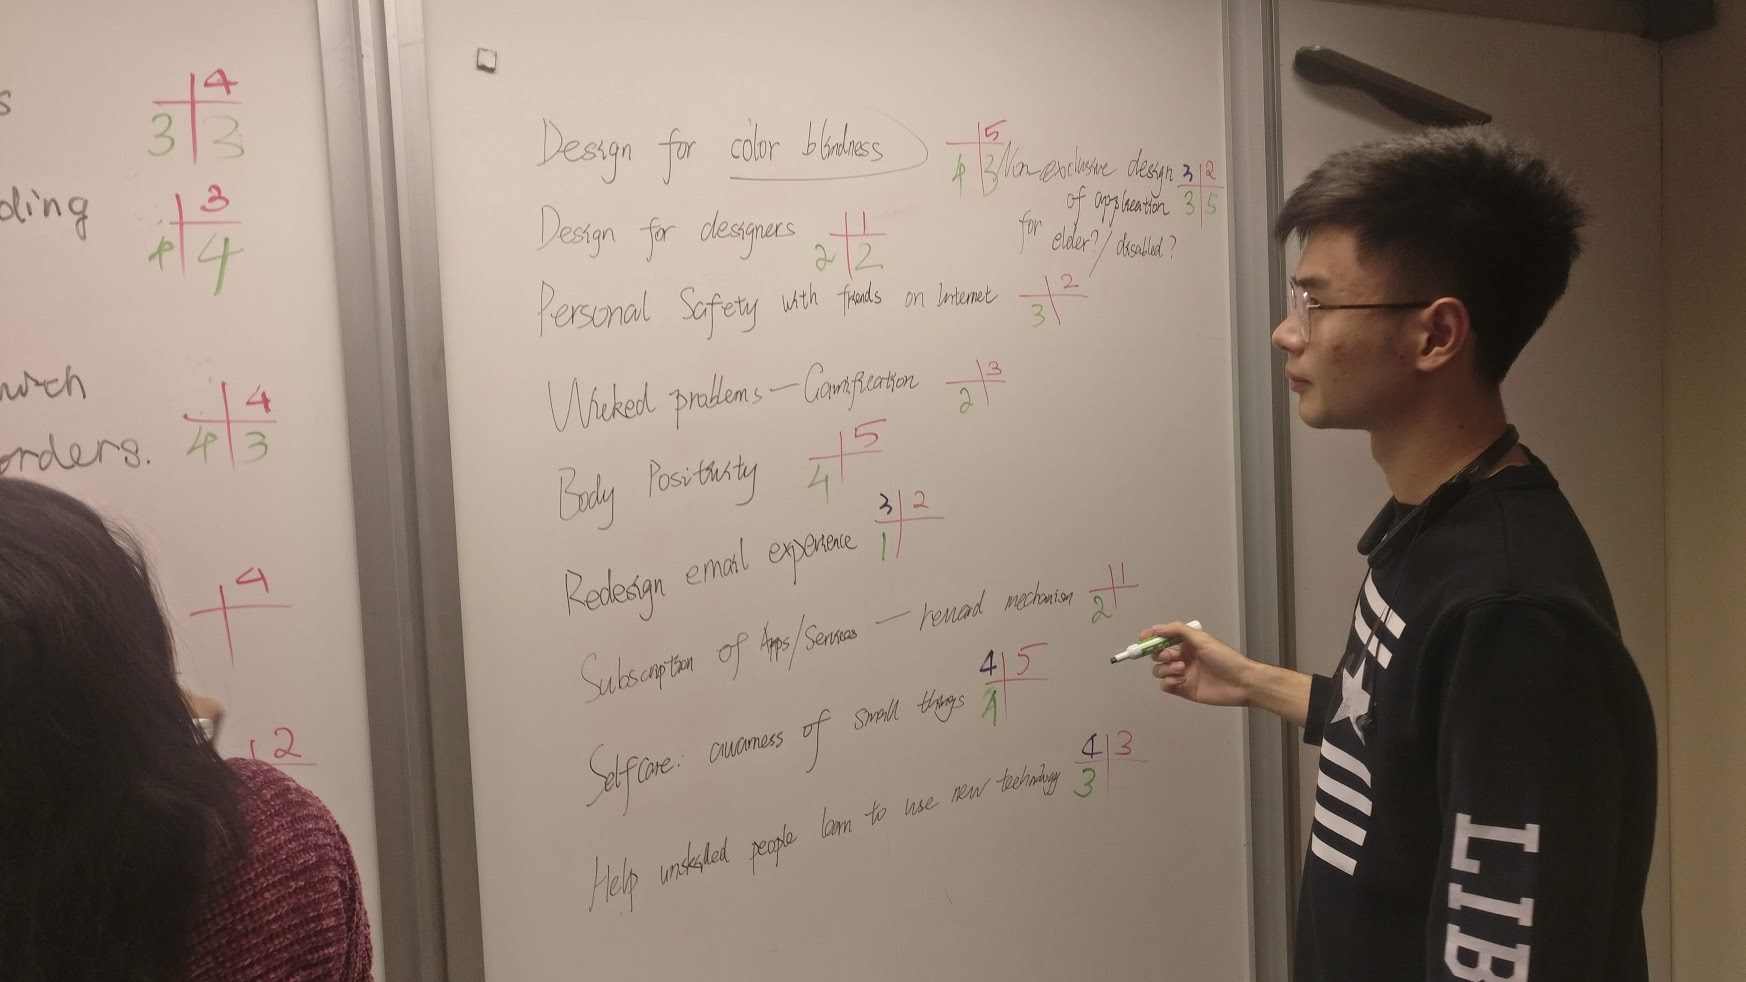 s
4
3 3
ding
3
4 4
with
orders.
4
4 3
4
2
Design for color blindness
5
4 3
Non-exclusive design
of application
for elder?/disabled?
3 2
3 5
Design for designers
1
2 2
Personal Safety with friends on Internet
2
3
Wicked problems — Gamification
3
2
Body Positivity
5
4
Redesign email experience
3 2
1
Subscription of Apps/Services — reward mechanism
1
2
Selfcare: awarness of small things
4 5
Help unskilled people learn to use new technology
4 3
3
LIB